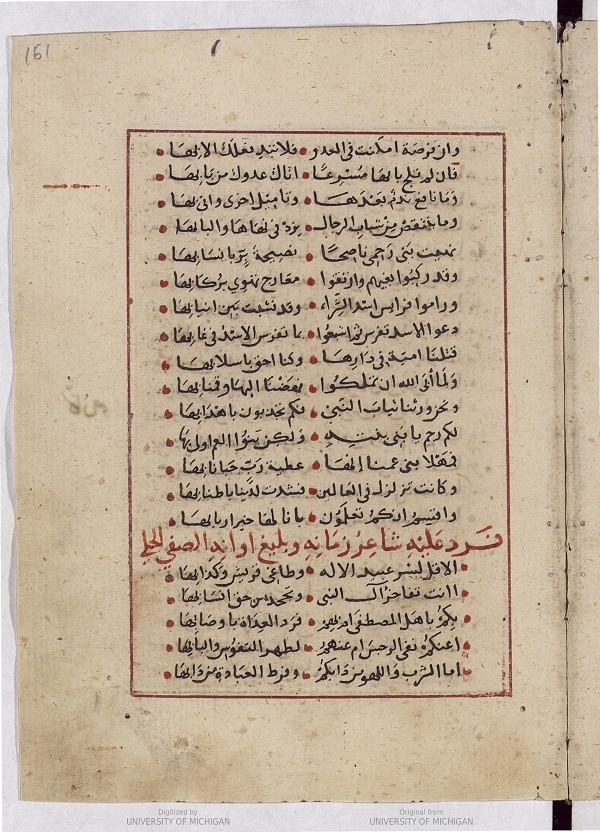 161
وان فرصة امكنت في العدو • فلا تبد فعلك الا بها •
فان لم تلج بابها مسرعا • اتاك عدوك من بابها •
وما نافع ندم بعدها • وتاميل اخرى وانى بها •
وما ينتقص من شباب الرجال • يزد في نهاها والبابها
نهيت بني رحمي ناصحا • نصيحة بر بانسابها •
وقد ركبوا بغيهم وارتقوا • معارج تهوي بركابها •
وراموا فرايس اسد الشراء • وقد نشبت بين انيابها •
دعوا الاسد تفرس ثم اشبعوا • بما تفرس الاسد في غابها •
قتلنا امية في دارها • وكنا احق باسلابها •
ولما أبى الله ان تملكوا • نهضنا اليها وقمنا بها •
ونحن ورثنا ثياب النبي • فكم تجذبون باهدابها •
لكم رحم يا بني بنته • ولكن بنوا العم اولى بها
فمهلا بني عمنا انها • عطية رب حبانا بها •
وكانت تزلزل في العالمين • فشدت لدينا باطنابها •
واقسم انكم تعلمون • بانا لها خير اربابها •
فرد عليه شاعر زمانه وبليغ اوانه الصفي الحلي
• الا قل لشر عبيد الاله • وطاغي قريش وكذابها •
• اانت تفاخر آل النبي • وتجحد من حق انسابها •
• بكم باهل المصطفى ام بهم • فرد العداة باوصابها •
• اعنكم نفى الرجس ام عنهم • لطهر النفوس والبابها •
• اما الشرب واللهو من دابكم • وفرط العبادة من دابها •
Digitized by
UNIVERSITY OF MICHIGAN
Original from
UNIVERSITY OF MICHIGAN